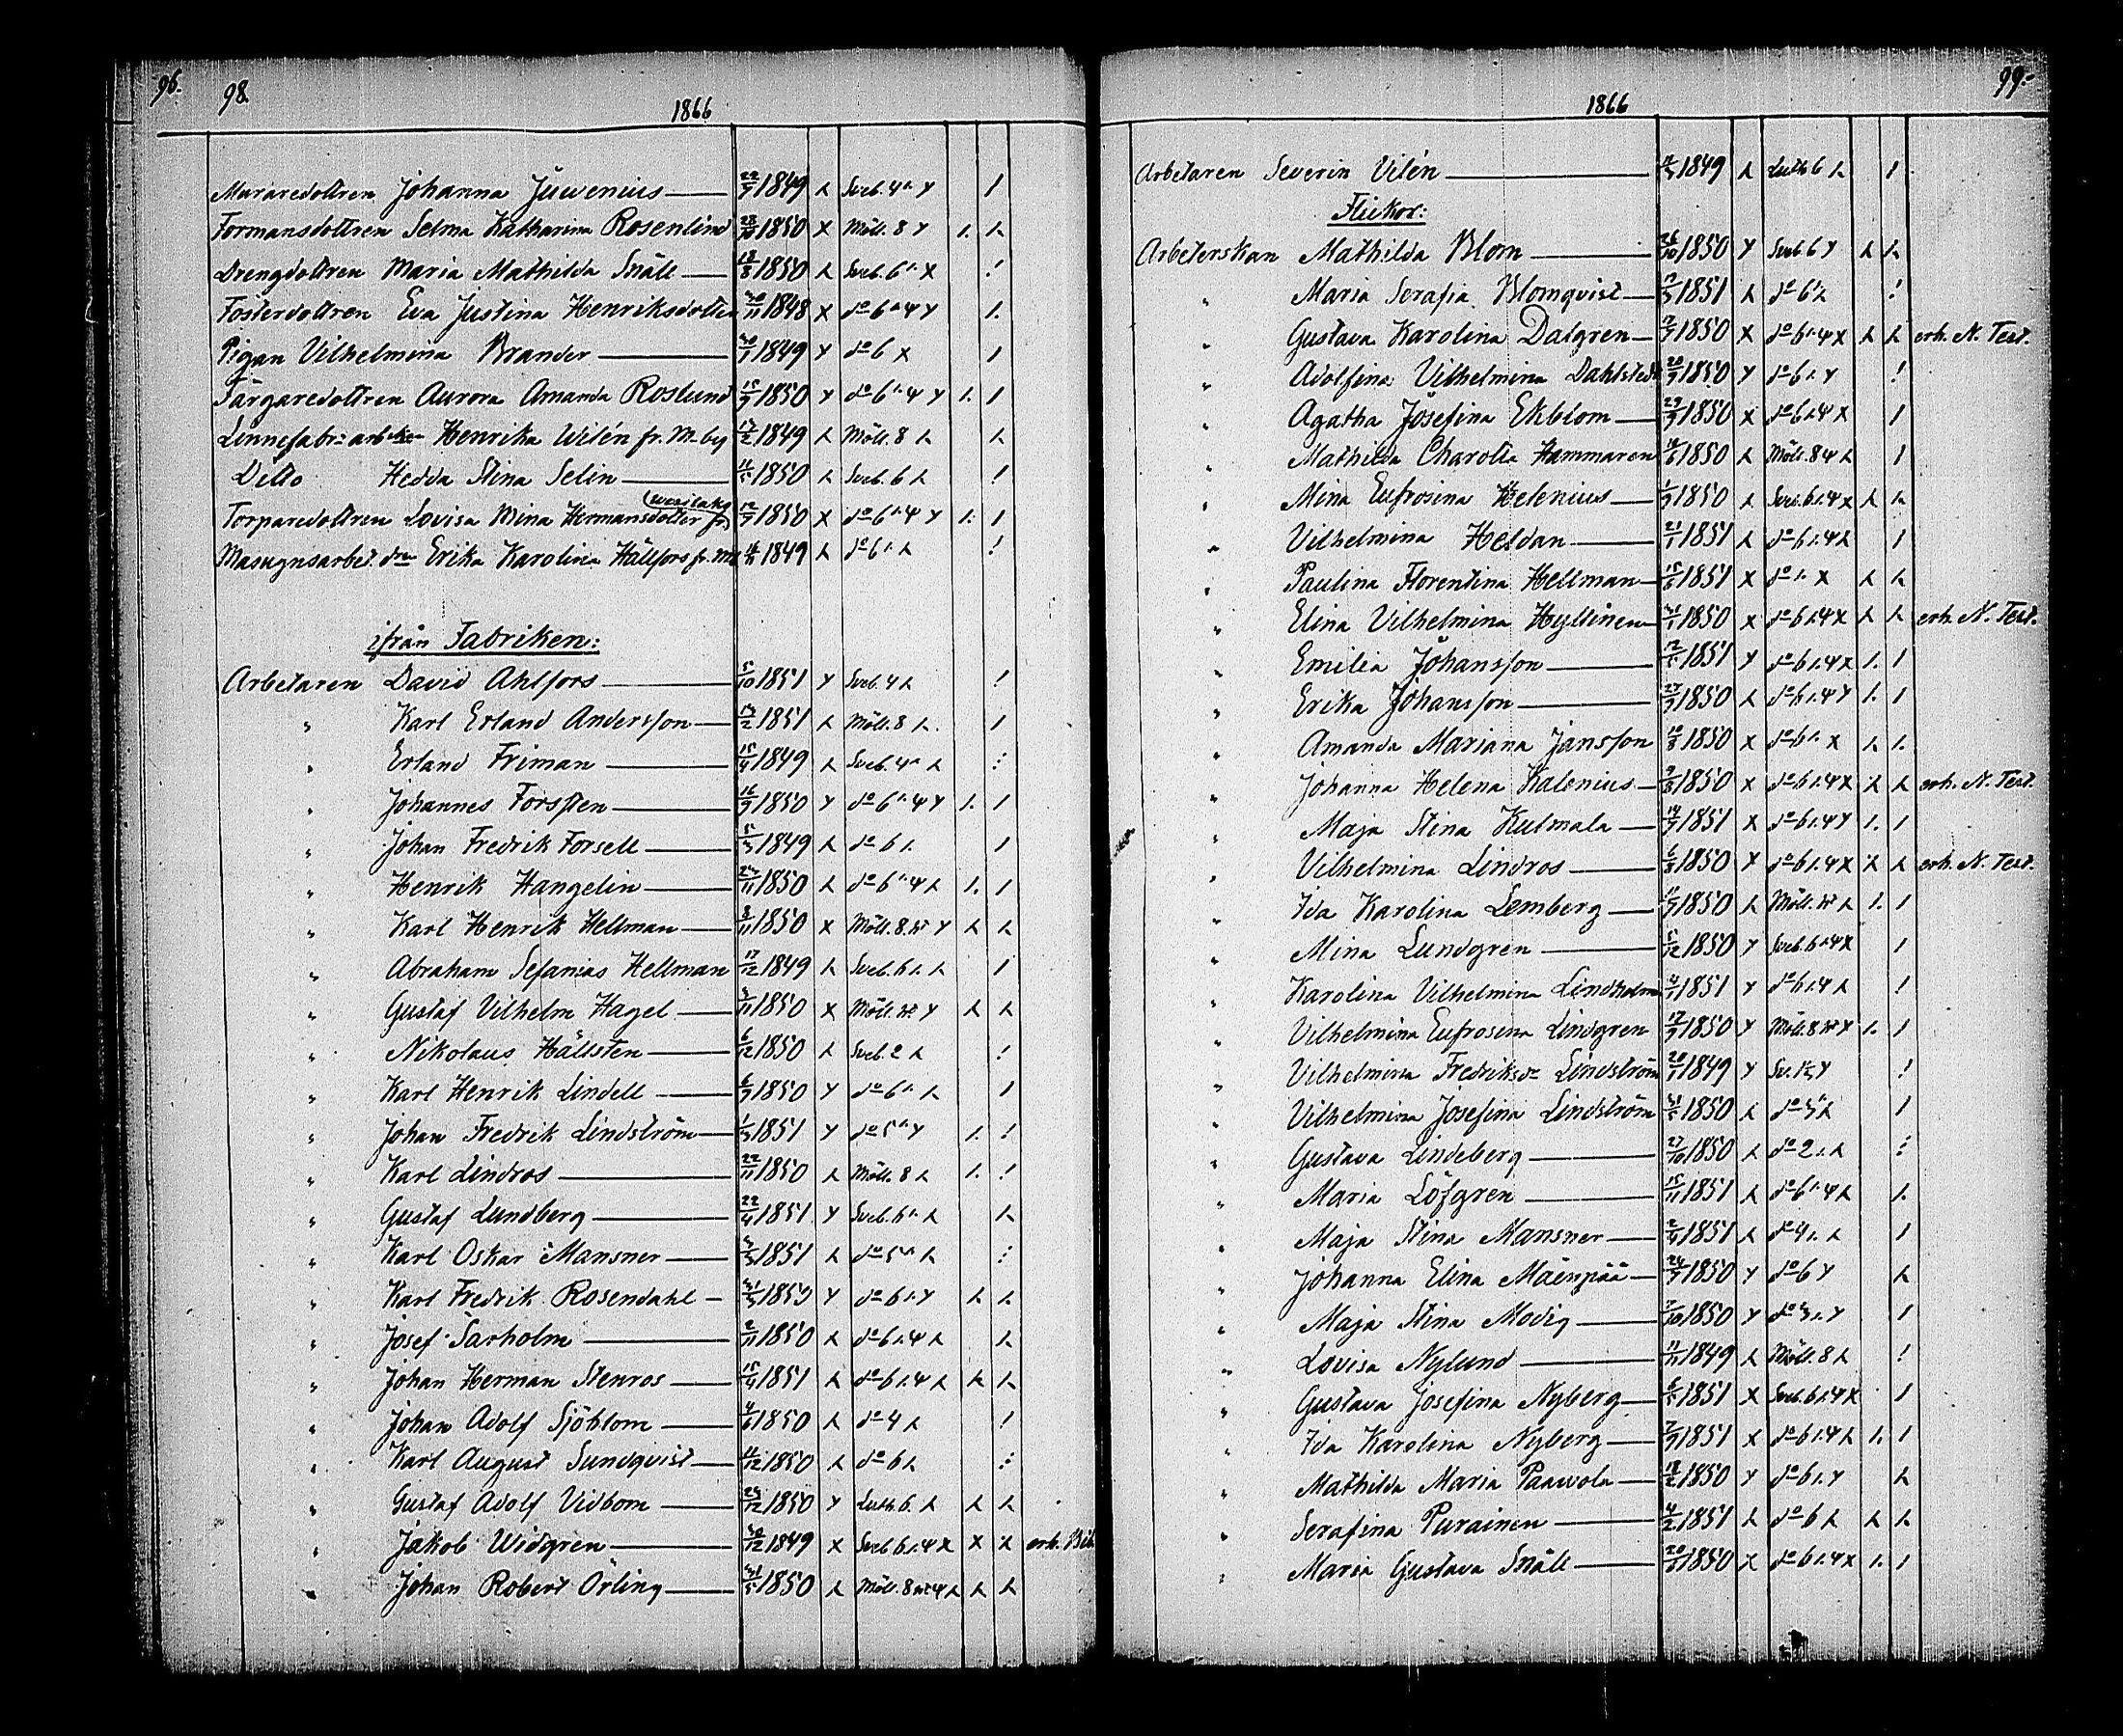 96.
98.
1866
Muraredottren Johanna Juvenius 22/7 1849 Sveb. 4
Formansdottren Selma Katharina Rosenlind 28/10 1850 Möll. 8
Drengdottren Maria Mathilda Snäll 18/8 1850 Sveb. 6
Fosterdottren Eva Justina Henriksdotter 30/11 1848 do 6 4
Pigan Vilhelmina Brander 30/7 1849 do 6
Färgaredottren Aurora Amanda Roslund 15/9 1850 do 6 4
Linnefabr: Henrika Wilén fr. M-by 17/2 1849 Möll. 8
Ditto Hedda Stina Selin 1850 Sveb. 6
Torparedottren Lovisa Mina Hermansdotter 12/9 1850 do 6 4
Masugnsarbet. Erika Karolina Hällfors 1849 do 6
ifrån Fabriken:
Arbetaren David Ahlfors 5/10 1851 Sveb. 4
" Karl Erland Andersson 1851 Möll. 8
" Erland Friman 15/4 1849 Sveb. 4
" Johannes Forssten 16/9 1850 do 6 4
" Johan Fredrik Forsell 1849 do 6
" Henrik Hangelin 1850 do 6 4
" Karl Henrik Hellman 8/11 1850 Möll. 8
" Abraham Sefanias Hellman 17/12 1849 Sveb. 6
" Gustaf Vilhelm Hagel 1850 Möll.
" Nikolaus Hällsten 6/12 1850 Sveb. 2
" Karl Henrik Lindell 6/9 1850 do 6
" Johan Fredrik Lindström 1851 do 5
" Karl Lindros 22/11 1850 Möll. 8
" Gustaf Lundberg 22/4 1851 Sveb. 6
" Karl Oskar Mansner 1851 do 5
" Karl Fredrik Rosendahl do 6
" Josef Sarholm 2/11 1850 do 6 4
" Johan Herman Stenros 15/4 1851 do 6 4
" Johan Adolf Sjöblom 4/6 1850 do 4
" Karl August Sundqvist 11/12 1850 do 6
" Gustaf Adolf Vidbom 25/12 1850 Luth. 6
" Jakob Widgren 30/12 1849 Sveb 6 4 erh. Bib.
" Johan Robert Örling 31/5 1850 Möll. 8 4
99.
1866
Arbetaren Severin Vilén 1849 Luth 6
Flickor:
Arbeterskan Mathilda Blom 26/10 1850 Sveb. 6
" Maria Serafia Blomqvist 1851 do 6
" Gustava Karolina Dalgren 1850 do 6 4 erh. N. Test.
" Adolfina Vilhelmina Dahlstedt 20/9 1850 do 6
" Agatha Josefina Ekblom 29/9 1850 do 6 4
" Mathilda Charotta Hammaren 1850 Möll. 8 4
" Mina Eufrosina Helenius 1850 Sveb. 6 4
" Vilhelmina Heldan 21/1 1851 do 6 4
" Paulina Florentina Hellman 15/6 1851 do
" Elina Vilhelmina Hyltinen 31/1 1850 do 6 4 erh. N. Test.
" Emilia Johansson 1851 do 6 4
" Erika Johansson 27/7 1850 do 6 4
" Amanda Mariana Jansson 10/8 1850 do 6
" Johanna Helena Kalenius 9/8 1850 do 6 4 erh. N. Test.
" Maja Stina Kulmala 1851 do 6 4
" Vilhelmina Lindros 6/8 1850 do 6 4 erh. N. Test.
" Ida Karolina Lemberg 1850 Möll.
" Mina Lundgren 5/12 1850 Sveb. 6 4
" Karolina Vilhelmina Lindholm 1851 do 6 4
" Vilhelmina Eufrosina Lindgren 17/9 1850 Möll. 8
" Vilhelmina Fredriksdr Lindström 20/1 1849 Sv.
" Vilhelmina Josefina Lindström 1850 do
" Gustava Lindeberg 27/10 1850 do 2
" Maria Löfgren 15/11 1851 do 6 4
" Maja Stina Mansner 1851 do 4
" Johanna Elina Mäenpää 24/7 1850 do 6
" Maja Stina Modig 1850 do
" Lovisa Nylund 1849 Möll. 8
" Gustava Josefina Nyberg 1851 Sveb. 6 4
" Ida Karolina Nyberg 1851 do 6 4
" Mathilda Maria Paavola 18/2 1850 do 6
" Serafina Purainen 4/2 1851 do 6
" Maria Gustava Snäll 1850 do 6 4